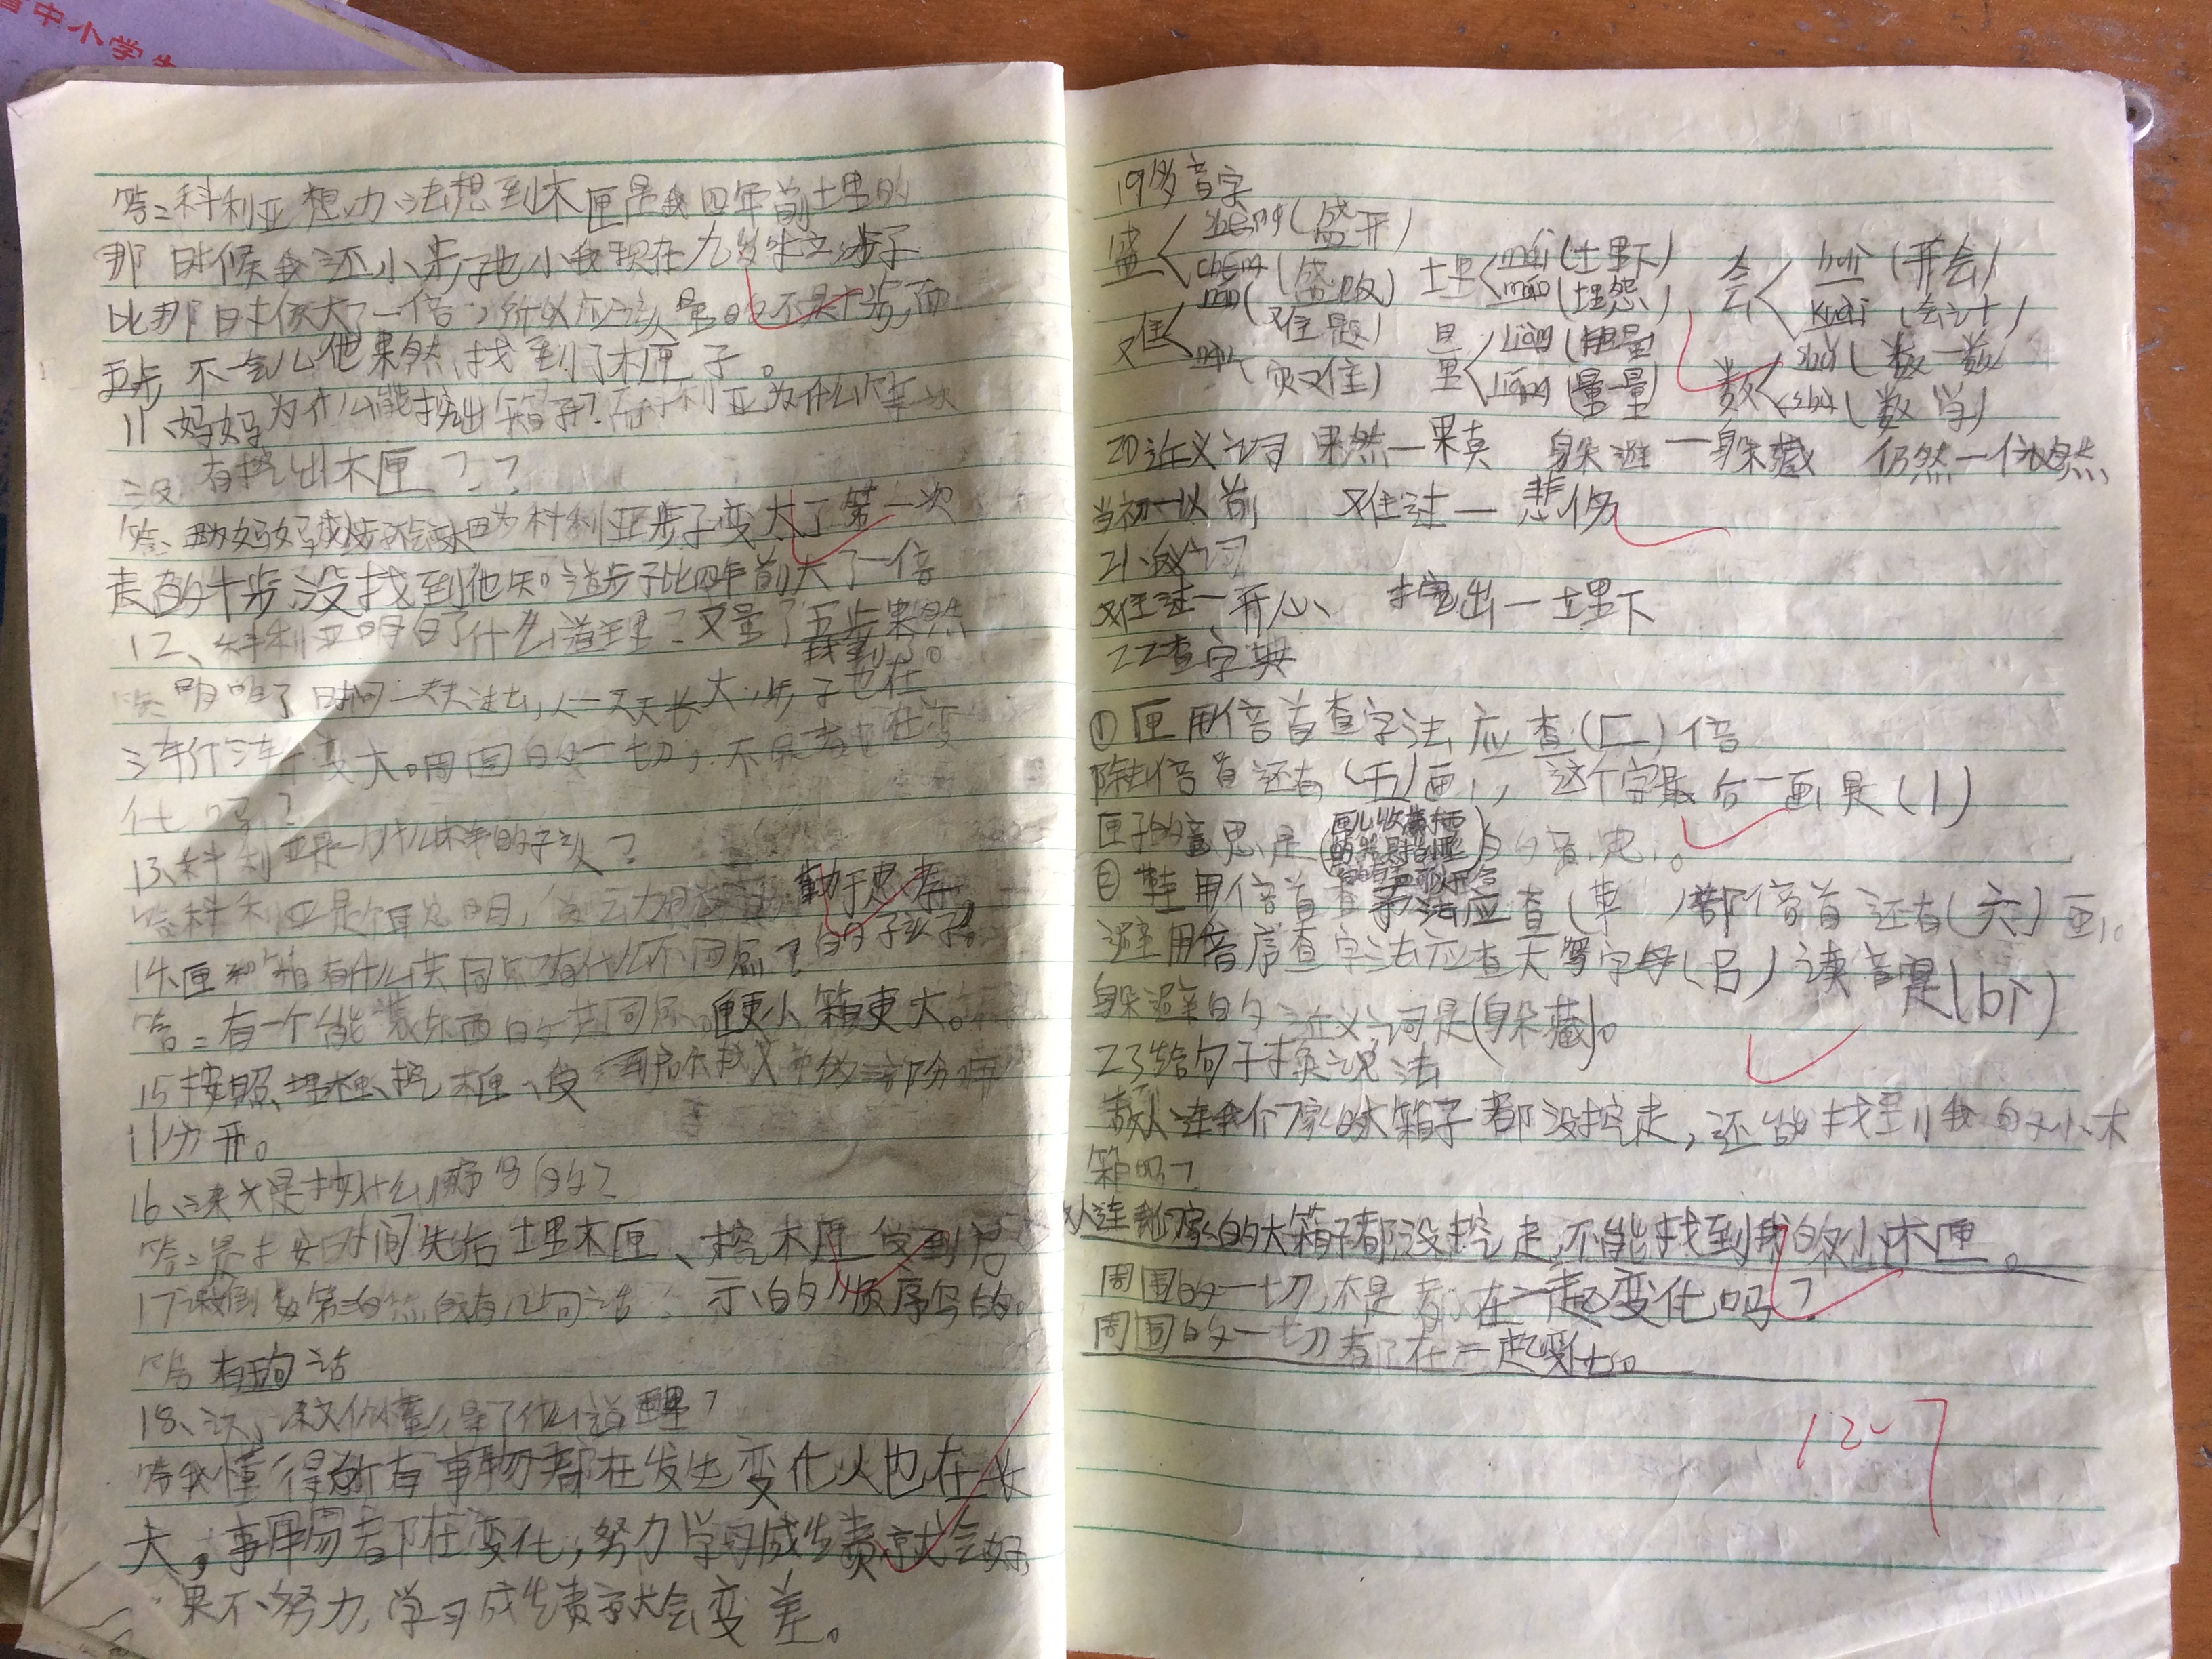 省中小学生
答:科利亚想办法想到木匣是我四年前埋的
那时候我还小步子也小我现在九岁步子
比那时候大了一倍,所以应该量的不是十步,而
五步不一会儿他果然找到了木匣子。
11、妈妈为什么能挖出箱子?而科利亚为什么第一次
没有挖出木匣??
因为科利亚步子变大了第一次
走的十步没找到他知道步子比四年前大了一倍
又量了五步果然
找到了。
12、科利亚明白了什么道理?
答 明白了时间一天天过去,人一天天长大,步子也在
渐渐变大。周围的一切,不是都在变
化吗?
13、科利亚是一个什么样的孩子?
答科利亚是个聪明,勤于思考
的孩子。
14、匣和箱有什么共同点?有什么不同点?
答:有一个能装东西的共同点。匣更小箱更大。
15按照埋匣、挖匣、受到启示
分开。
16、课文是按什么顺序写的?
答:是按时间先后埋木匣、挖木匣受到启
示的顺序写的。
17 有几句话?
答 有 句话
18、课文你懂得了什么道理?
答我懂得所有事物都在发生变化人也在长
大,事物都在变化,努力学习成绩就会好,
果不努力,学习成绩就会变差。
19多音字
盛 shèng(盛开) chéng(盛饭) 埋 mái(埋下) mán(埋怨) 会 huì(开会) kuài(会计)
难 nán(难题) nàn(灾难) 量 liàng( 量) liáng(量一量) 数 shǔ(数一数) shù(数学)
20近义词 果然—果真 躲避—躲藏 仍然—依然
当初—以前 难过—悲伤
21、反义词
难过—开心、 挖出—埋下
22查字典
①匣用部首查字法应查(匚)部
除部首还有(五)画,这个字最后一画是(乚)
匣子的意思是(匣儿收藏东西的器具 )的意思。
②鞋用部首查字法应查(革)部部首还有(六)画。
避用音序查字法应查大写字母(B)读音是(bì)
躲避的近义词是(躲藏)。
23给句子换说法
敌人连我们家的大箱子都没挖走,还能找到我的小木
箱吗?
敌人连我们家的大箱子都没挖走,不能找到我的小木匣。
周围的一切,不是都在一起变化吗?
周围的一切都在一起变化。
12-7